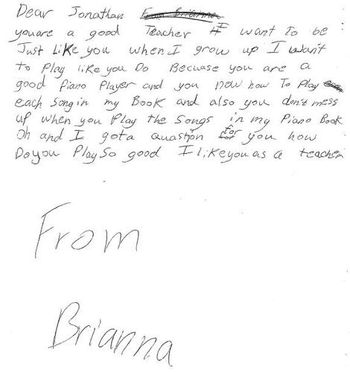 Dear Jonathan From Brianna
youare a good Teacher I want To be
Just Like you when I grow up I want
to Play like you Do Becuase you are a
good Piano Player and you now how To Play
each song in my Book and also you don't mess
up when you Play the Songs in my Piano Book
Oh and I gota quastion for you how
Do you Play So good I like you as a teacher
From
Brianna